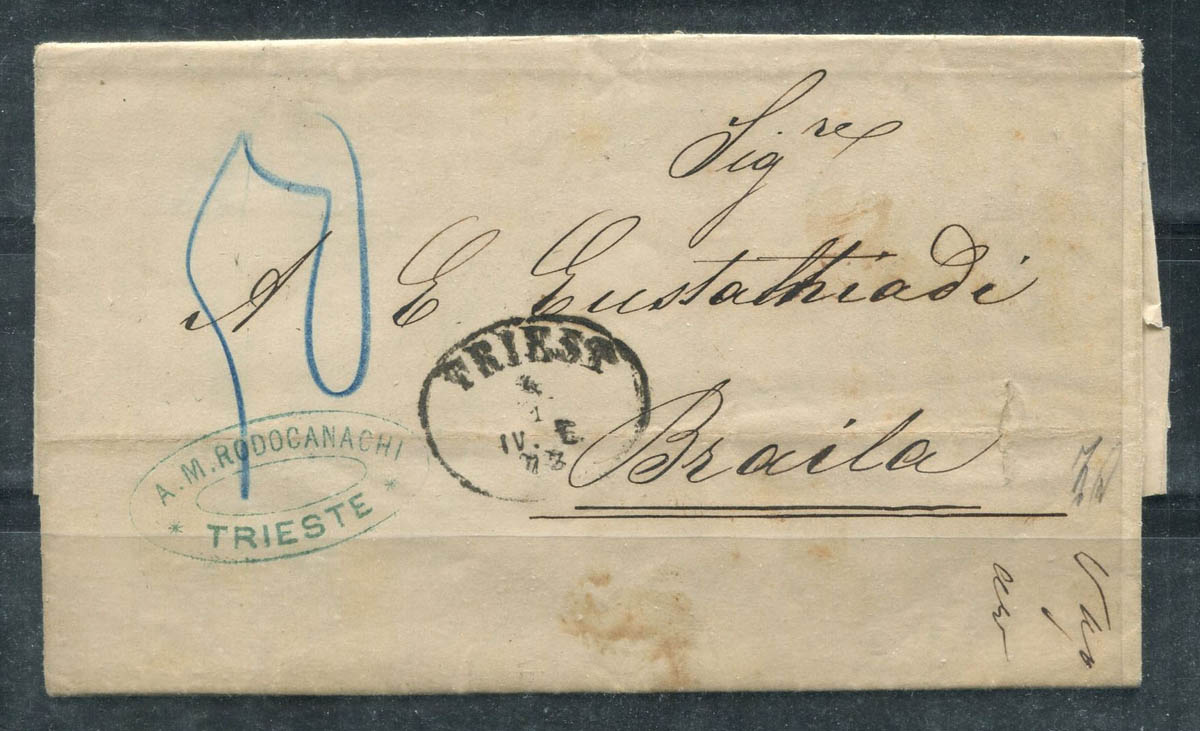 Sig.re
A E Eustathiadi
Braila
TRIEST
4
1
IV. E.
73
A. M. RODOCANACHI
* TRIESTE *
10